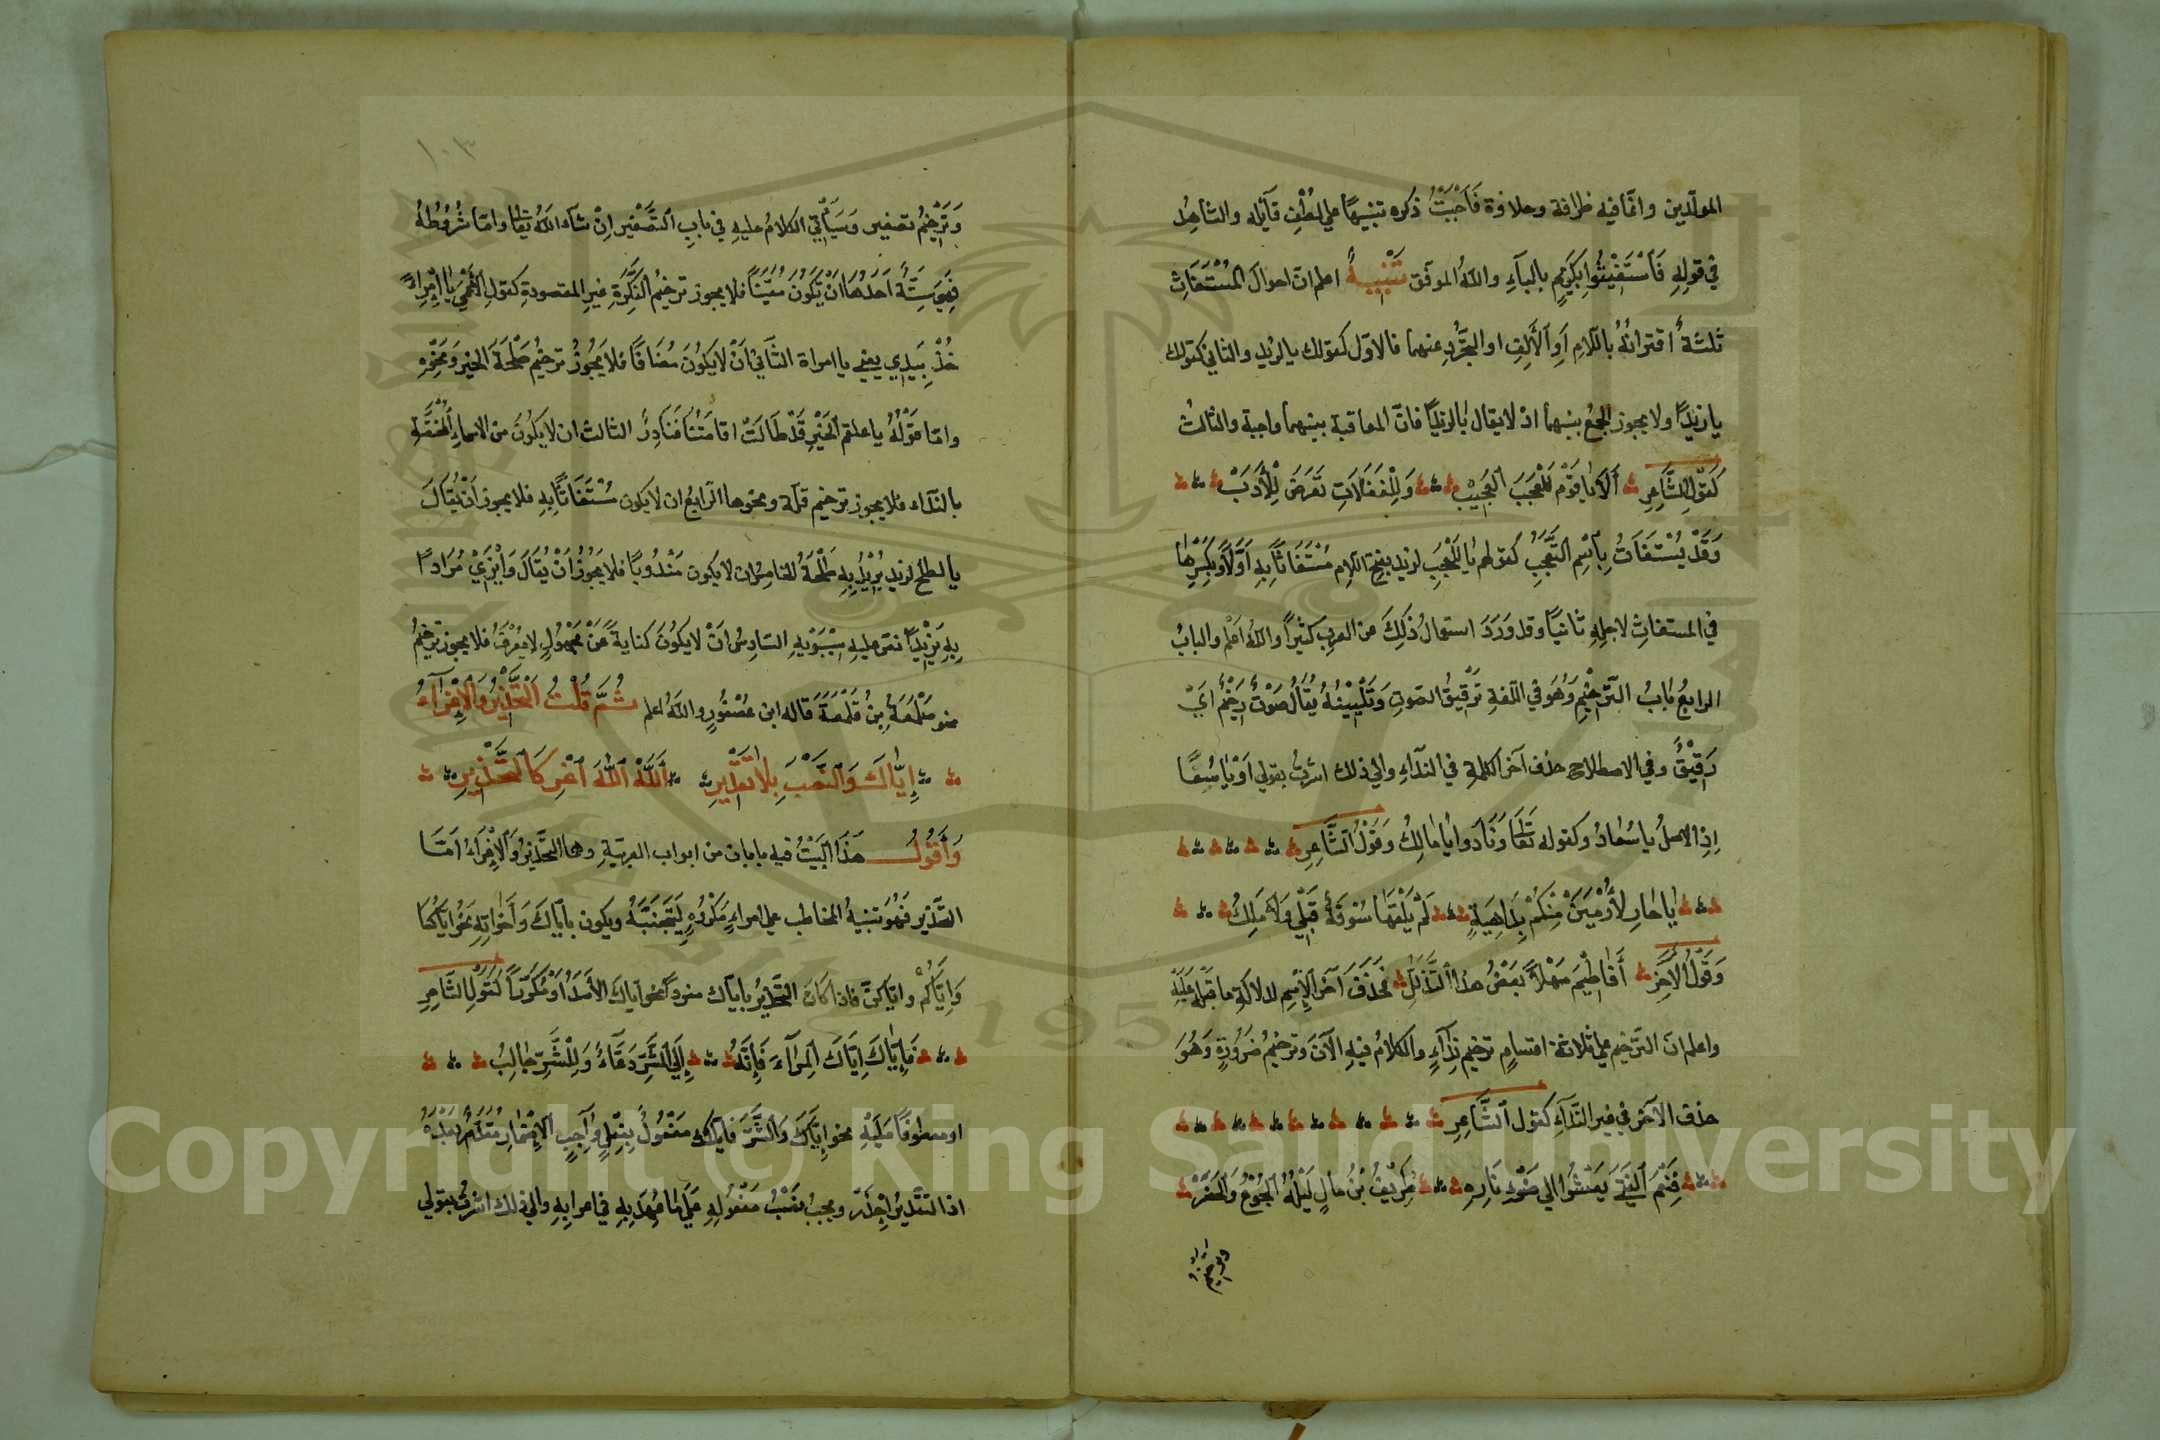 المولّدين وانّما فيه ظرافة وحلاوة فَأَحْبَبْتُ ذكره تنبيهًا على لُطْفِ قآئله والشاهدُ
فى قولِهِ فَاسْتَغِيثُوا بِكَرِيمٍ بالبآءِ واللهُ الموفّق تَنْبِيهٌ اعلم انّ احوالَ المُسْتَغَاثِ
ثلثةٌ اقترانُهُ باللّامِ أَوِ الْأَلِفِ او التجرُّدِ عنهما فالاوّل كقولك يا لزيد والثانى كقولك
يا زَيْدَا ولا يجوز الجمْعُ بينهما اذ لا يقال يا لزيدَا فانّ المعاقبة بينهما واجبة والثالثُ
كَقَوْلِ الشَّاعِرِ أَلَا يَا قَوْمِ لِلْعَجَبِ الْعَجِيبْ وَلِلْغَفَلَاتِ تَعْرِضُ لِلْأَدِيبْ
وَقَدْ يُسْتَغَاثُ بِاسْمِ التَّعَجُّبِ كقولهم يَا لَلْعَجَبِ لزيد بفتح اللام مُسْتَغَاثًا بِهِ أَوَّلًا وَبِكَسْرِهَا
فى المستغاثِ لاجلِهِ ثانيًا وقد وَرَدَ استعمالُ ذَلِكَ من العرب كثيرًا واللهُ اعلم والبابُ
الرابعُ بَابُ التَّرْخِيمِ وَهُوَ فى اللّغةِ تَرْقِيقُ الصّوتِ وَتَلْيِينُهُ يُقَالُ صَوْتٌ رَخِيمٌ اَىْ
رَقِيقٌ وفى الاصطلاح حذف آخر الكلمةِ فى الندآءِ والى ذلك اشرتُ بقولى اَوْ يَا سُعَا
اِذِ الاصلُ يا سُعَادُ وكقوله تَعَالَى وَنَادَوا يَا مَالِكُ وَقَوْلُ الشَّاعِرِ
يَا حَارِ لَا أُرْمَيَنْ مِنْكُمْ بِدَاهِيَةٍ لَمْ يَلْقَهَا سُوقَةٌ قَبْلِى وَلَا مَلِكُ
وَقَوْلُ الْآخَرِ أَفَاطِمَ مَهْلًا بَعْضَ هذَا التَّدَلُّلِ فَحَذَفَ آخرَ الْاِسْمِ لدلالة ما قَبْلَهُ عَلَيْهِ
واعلم انّ الترخيم على ثلاثة اقسامٍ ترخيم نِدَآءٍ والكلامُ فيهِ الْآنَ وترخيمُ ضَرُورَةٍ وَهُوَ
حذف الآخر فى غير النّدَآءِ كقول الشَّاعِرِ
فَنِعْمَ الْفَتَى يَعْشُوا الى ضَوْءِ نَارِهِ طَرِيفُ بْنُ مَالٍ لَيْلَةَ الْجُوعِ وَالْخَصَرْ
وترخيم
١٠٣
وَتَرْخِيمُ تصغير وَسَيَأْتِى الكلامُ عليهِ فى بابِ التَّصْغِيرِ اِنْ شآء اللهُ تعالى واما شُرُوطُهُ
فَهِىَ سِتَّةٌ اَحَدُهَا اَنْ يَكُونَ مُعَيَّنًا فلا يجوز ترخيمُ النَّكِرَةِ غيرِ المقصودةِ كقولِ الْأَعْمَى يَا امْرَاَةً
خُذْ بِيَدِي يعنى يا امراة الثَّانِى اَنْ لَا يَكُونَ مُضَافًا فَلَا يَجُوزُ ترخيمُ طَلْحَةَ الخير وَنَحْوِهِ
واما قَوْلُهُ يا علقم الْخَيْرِ قَدْ طَالَتْ اقامَتُنَا فَنَادِرٌ الثالث ان لا يكُونَ من الاسماءِ الْمُخْتَصَّةِ
بالنّدآء فلا يجوز ترخيم فلة ونحوها الرّابعُ ان لا يكون مُسْتَغَاثًا بِهِ فلا يجوز اَنْ يُقَالَ
يا لطلح لزيد يُرِيدُ بِهِ طَلْحَةُ الخامسُ ان لا يكون مَنْدُوبًا فلا يَجُوزُ اَنْ يُقَالَ وَا يَزِي مُرَادًا
بِهِ يَزِيدَا نصّ عليهِ سِيبَوَيْهِ السّادسُ اَنْ لَا يكُونَ كنايةً عَنْ مَجْهُولٍ لَا يُعْرَفُ فلا يجوز ترخيمُ
نحو صَلْعَمَةُ بنُ قَلْعَمَةَ قاله ابن عُصْفُورٍ واللهُ اعلم ثُمَّ قُلْتُ التَّحْذِيرُ وَالْاِغْرَآءُ
إِيَّاكَ وَالنَّصْبَ بِلَا تَعْذِيرِ اَللهَ اللهَ اغْرِ كَالتَّحْذِيرِ
وَأَقُولُ هَذَا الْبَيْتُ فيه بابان من ابواب العربيّةِ وهما التّحْذِيرُ وَالْاِغْرَاءُ امّا
التّحْذير فَهُوَ تنبيهُ المخاطب على امرٍ مَكْرُوهٍ لِيَجْتَنِبَهُ ويكون باِيّاكَ وَأَخَوَاتِهِ نحو اِيّاكُمَا
وَاِيَّاكُمْ واِيّاكنّ فاذا كان التّحْذِيرُ باِيّاك مفردًا نحو اِياك الأسَدَ اوْ مُكَرّرًا كَقَوْلِ الشَّاعِرِ
فَإِيَّاكَ إِيَّاكَ الْمِرَآءَ فَإِنَّهُ إِلَى الشَّرِّ دَعَّاءٌ وَلِلشَّرِّ جَالِبُ
او معطوفًا عَلَيْهِ نحو إِيَّاكَ وَالشَّرَّ فاياك مَفْعُولٌ بِفِعْلٍ وَاجِبِ الْاِضْمَارِ
اذ التّقْدِيرُ اِحْذَرْ ويجبُ نَصْبُ مَفْعُولِهِ عَلَى مَا عُهِدَ بِهِ فى اعرابِهِ والى ذلك اشرتُ بقولى
Copyright © King Saud University
195